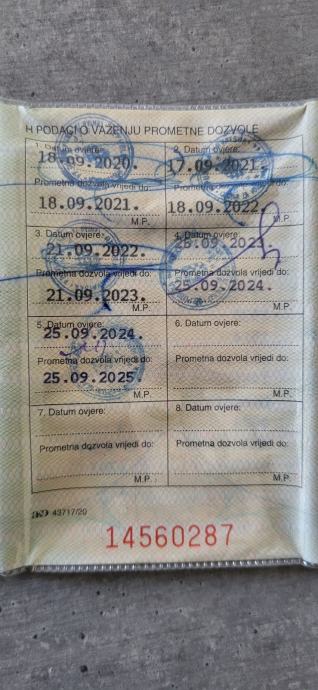 H PODACI O VAŽENJU PROMETNE DOZVOLE
1. Datum ovjere: 2. Datum ovjere:
18.09.2020. 17.09.2021.
Prometna dozvola vrijedi do: Prometna dozvola vrijedi do:
18.09.2021. 18.09.2022.
M.P. M.P.
3. Datum ovjere: 4. Datum ovjere:
21.09.2022. 25.09.2023.
Prometna dozvola vrijedi do: Prometna dozvola vrijedi do:
21.09.2023. 25.09.2024.
M.P.
5. Datum ovjere: 6. Datum ovjere:
25.09.2024.
Prometna dozvola vrijedi do: Prometna dozvola vrijedi do:
25.09.2025.
M.P. M.P.
7. Datum ovjere: 8. Datum ovjere:
Prometna dozvola vrijedi do: Prometna dozvola vrijedi do:
M.P. M.P.
43717/20
14560287